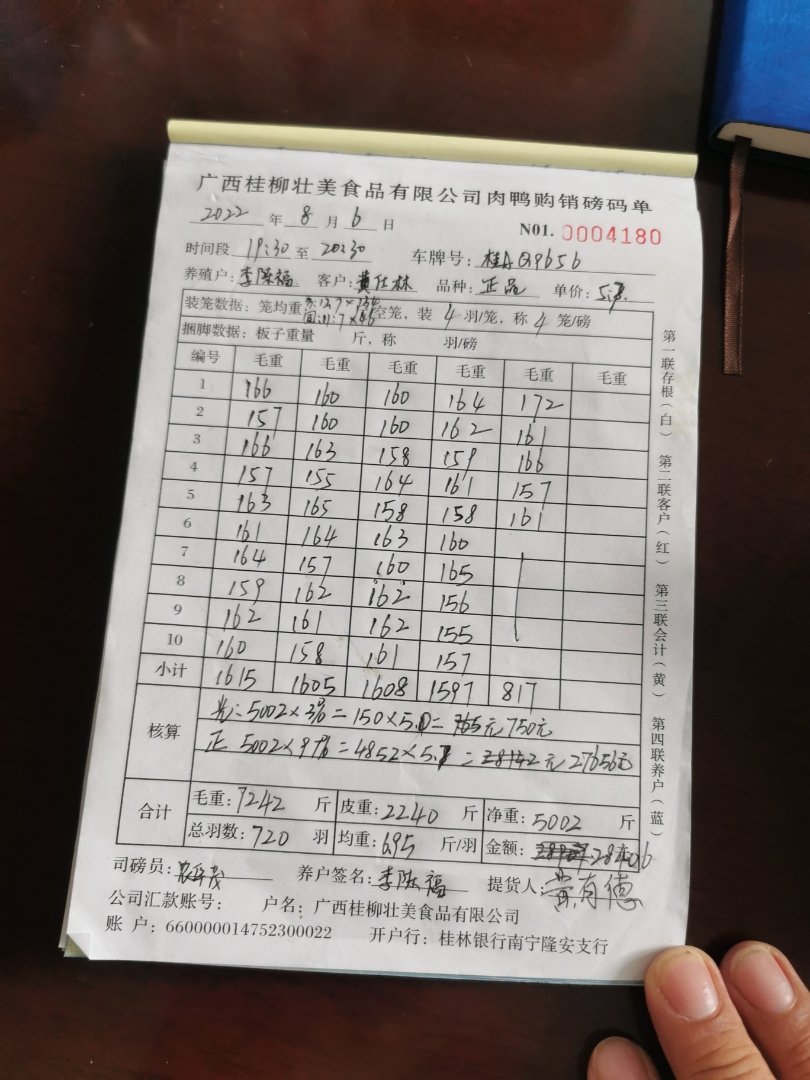 广西桂柳壮美食品有限公司肉鸭购销磅码单
2022 年 8 月 6 日 N01. 0004180
时间段 19:30 至 20:30 车牌号: 桂A Q9656
养殖户: 李陈福 客户: 黄仕林 品种: 正品 单价:
装笼数据: 笼均重 空笼, 装 4 羽/笼, 称 4 笼/磅
捆脚数据: 板子重量 斤, 称 羽/磅
编号 毛重 毛重 毛重 毛重 毛重 毛重
1 166 160 160 164 172
2 157 160 160 162 161
3 166 163 158 159 166
4 157 155 164 161 157
5 163 165 158 158 161
6 161 164 163 160
7 164 157 160 165
8 159 162 162 156
9 162 161 162 155
10 160 158 161 157
小计 1615 1605 1608 1597 817
核算 光: 5002×3% = 150×5.0 = 765元 750元
正 5002×97% = 4852×5.7 = 元 27656元
合计 毛重: 7242 斤 皮重: 2240 斤 净重: 5002 斤
总羽数: 720 羽 均重: 6.95 斤/羽 金额: 28406
司磅员: 养户签名: 李陈福 提货人: 黄有德
公司汇款账号: 户名: 广西桂柳壮美食品有限公司
账 户: 660000014752300022 开户行: 桂林银行南宁隆安支行
第一联存根(白) 第二联客户(红) 第三联会计(黄) 第四联养户(蓝)